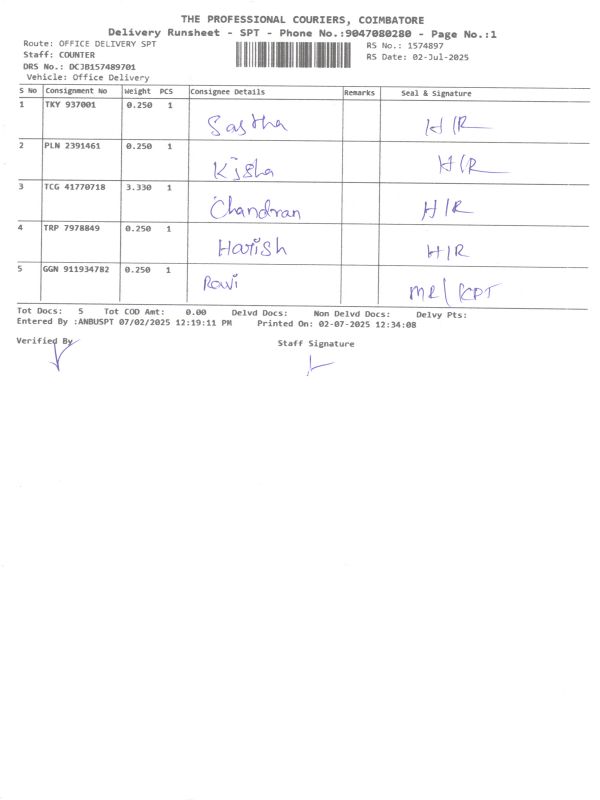 THE PROFESSIONAL COURIERS, COIMBATORE
Delivery Runsheet - SPT - Phone No.:9047080280 - Page No.:1
Route: OFFICE DELIVERY SPT RS No.: 1574897
Staff: COUNTER RS Date: 02-Jul-2025
DRS No.: DCJB157489701
Vehicle: Office Delivery
S No Consignment No Weight PCS Consignee Details Remarks Seal & Signature
1 TKY 937001 0.250 1
Sastha H/R
2 PLN 2391461 0.250 1
Kisha H/R
3 TCG 41770718 3.330 1
Chandran H/R
4 TRP 7978849 0.250 1
Harish H/R
5 GGN 911934782 0.250 1
Ravi MR/KPT
Tot Docs: 5 Tot COD Amt: 0.00 Delvd Docs: Non Delvd Docs: Delvy Pts:
Entered By :ANBUSPT 07/02/2025 12:19:11 PM Printed On: 02-07-2025 12:34:08
Verified By Staff Signature